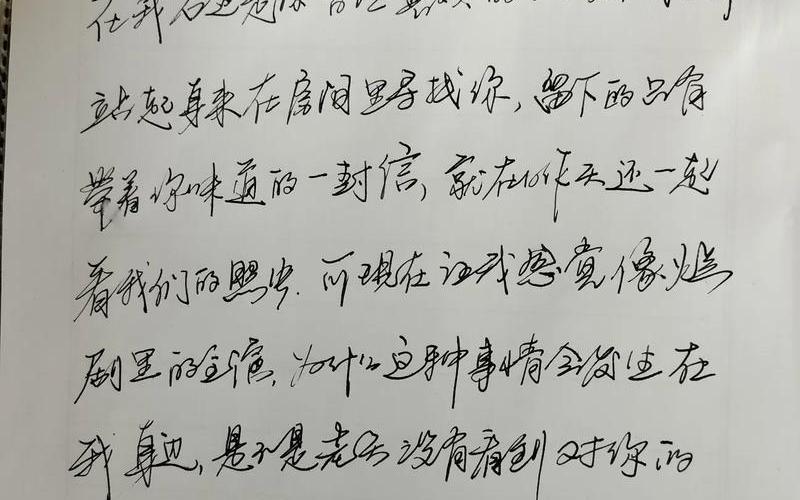 在我
站起身来在房间里寻找你,留下的只有
带着你味道的一封信,就在昨天还一起
看我们的照片.可现在让我感觉像烂
剧里的主演,为什么这种事情会发生在
我身边,是不是老天没有看到对你的